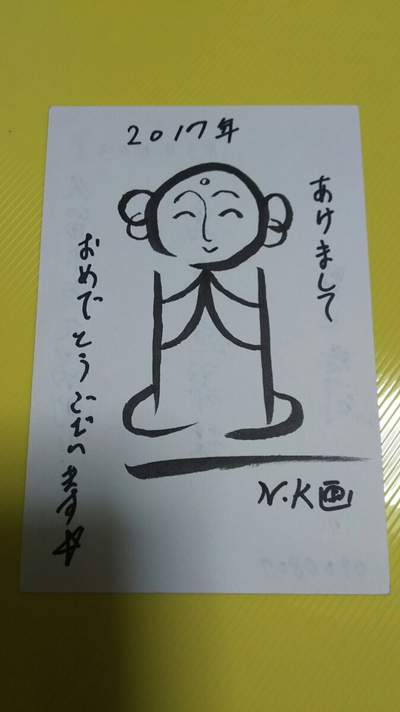 2017年
あけまして
おめでとうございます☆
N.K画